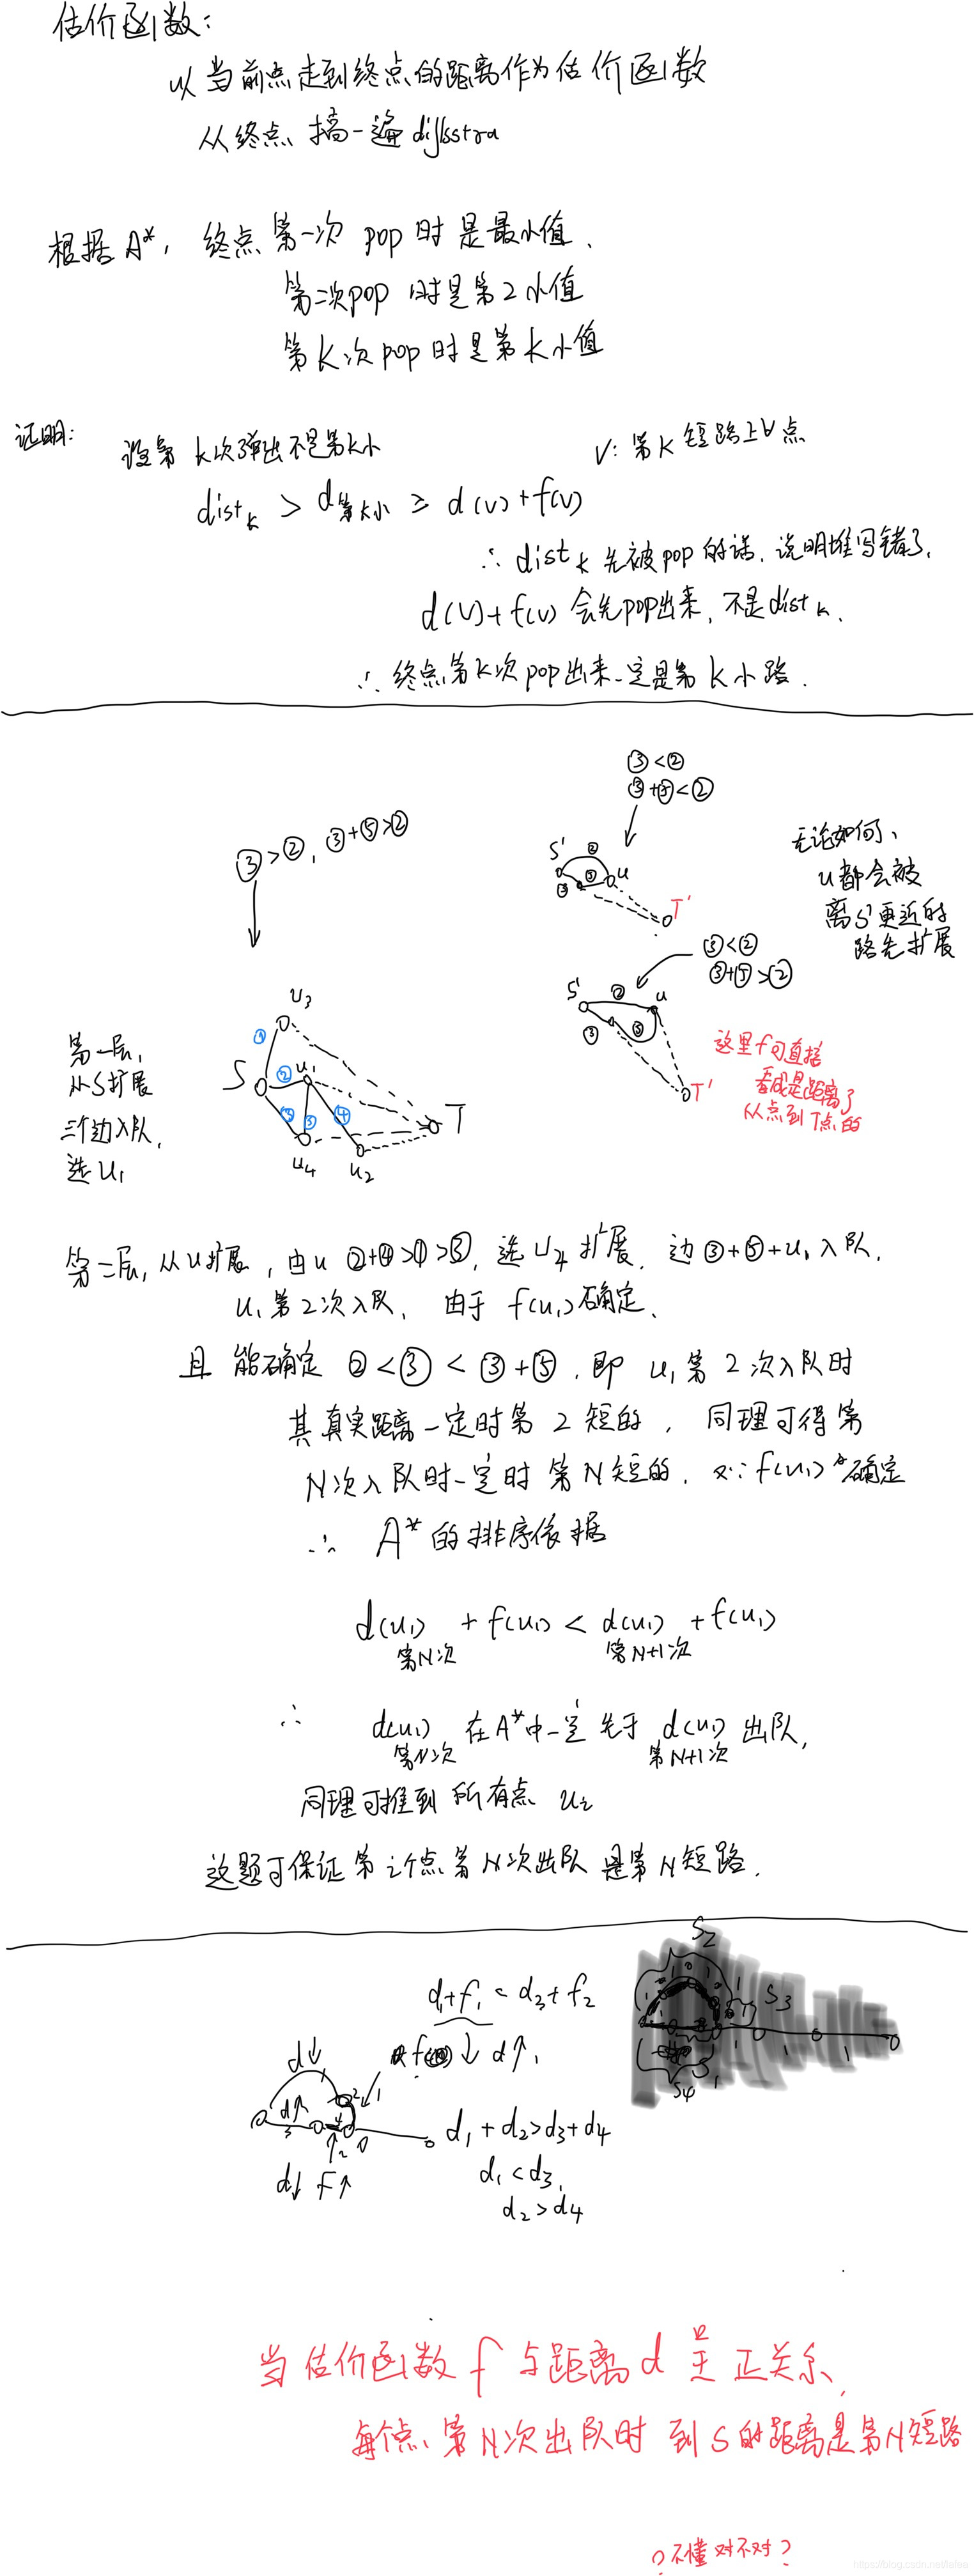 估价函数:
以当前点走到终点的距离作为估价函数
从终点搞一遍dijkstra
根据A*, 终点第一次pop时是最小值.
第二次pop时是第2小值
第K次pop时是第K小值
证明:
设第k次弹出不是第k小
V: 第K短路上V点
dist k > d第k小 ≥ d(v)+f(v)
∴ dist k 先被pop的话, 说明堆写错了,
d(v)+f(v)会先pop出来, 不是dist k.
∴ 终点第k次pop出来一定是第k小路.
③>②, ③+⑤>②
③<②
③+⑤<②
S' ② u
③ ⑤
T'
无论如何,
u都会被
离S'更近的
路先扩展
③<②
③+⑤>②
S' ② u
③ ⑤
T'
这里f可直接
看成是距离了
从点到T点的
第一层,
从S扩展
三个边入队,
选u₁
u₃
①
S ② u₁
③ ⑤ ④ T
u₄ u₂
第二层, 从u扩展, 由u ②+④>①>③, 选u₄扩展. 边③+⑤+u₁入队,
u₁第2次入队, 由于f(u₁)确定,
且能确定 ②<③<③+⑤, 即u₁第2次入队时
其真实距离一定时第2短的, 同理可得第
N次入队时一定时第N短的. 又∵f(u₁)确定
∴ A*的排序依据
d(u₁) + f(u₁) < d(u₁) + f(u₁)
第N次 第N+1次
∴ d(u₁) 在A*中一定先于 d(u₁) 出队,
第N次 第N+1次
同理可推到所有点 uᵢ
这题可保证第i个点第N次出队是第N短路.
S₂
S₃
S₄
d₁+f₁ < d₃+f₂
d↓
d↑
d↓ F↑
d₁+d₂>d₃+d₄
d₁<d₃,
d₂>d₄
当估价函数f与距离d呈正关系,
每个点、第N次出队时 到S的距离是第N短路
?不懂对不对?